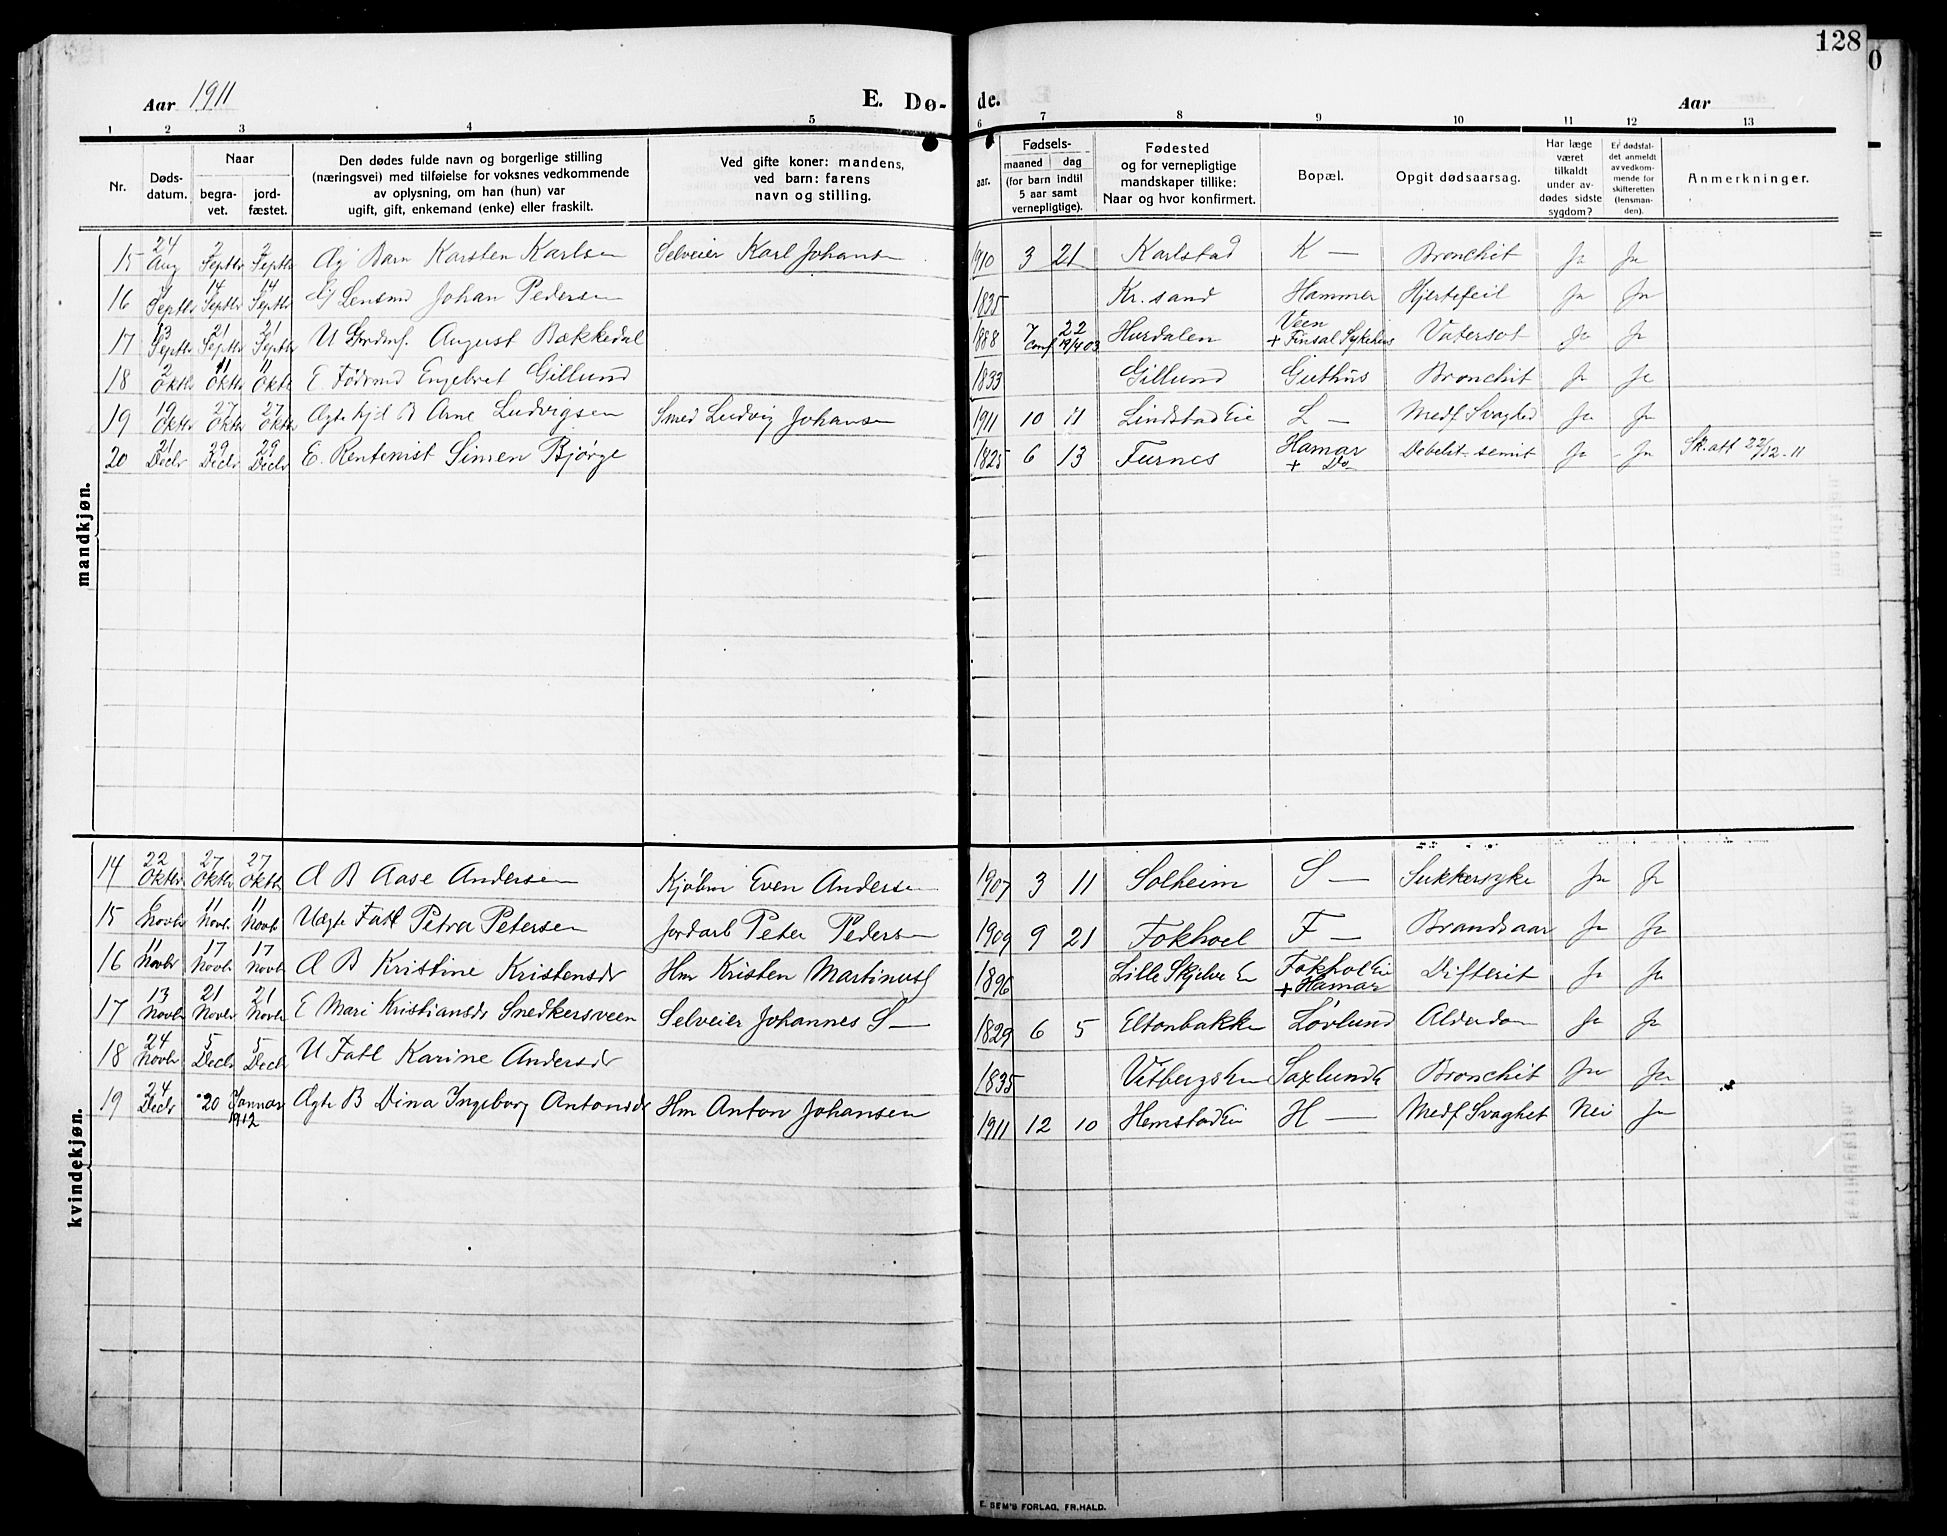 128
Aar 1911
E. Dø-
de.
Aar
1 2 3 4 5
6 7 8 9 10 11 12 13
Nr.
Døds-
datum.
Naar
begra-
vet.
jord-
fæstet.
Den dødes fulde navn og borgerlige stilling
(næringsvei) med tilføielse for voksnes vedkommende
av oplysning, om han (hun) var
ugift, gift, enkemand (enke) eller fraskilt.
Ved gifte koner: mandens,
ved barn: farens
navn og stilling.
aar.
Fødsels-
maaned dag
(for barn indtil
5 aar samt
vernepligtige).
Fødested
og for vernepligtige
mandskaper tillike:
Naar og hvor konfirmert.
Bopæl.
Opgit dødsaarsag.
Har læge
været
tilkaldt
under av-
dødes sidste
sygdom?
Er dødsfal-
det anmeldt
av vedkom-
mende for
skifteretten
(lensman-
den).
Anmerkninger.
mandkjøn.
15 24 Aug 2 Septbr 2 Septbr Barn Karsten Karlsen Selveier Karl Johans 1910 3 21 Karlstad K — Bronchit Ja Ja
16 Septbr 14 Septbr 14 Septbr Johan Pedersen 1835 Kr. sand Hammer Hjertefeil Ja Ja
17 13 Septbr 21 Septbr 21 Septbr U August Bækkedal 1888 7 22 Hurdalen Veen
conf 19/4 03 + Finsal Sykehus Vatersot Ja Ja
18 2 Oktbr 11 Oktbr 11 Oktbr E. Fødrmd Engebret Gillund 1833 Gillund Guthus Bronchit Ja Ja
19 19 Oktbr 27 Oktbr 27 Oktbr Ægte B Arne Ludvigsen Smed Ludvig Johansen 1911 10 11 Lindstad Eie L — Medf Svaghed Ja Ja
20 21 Decbr 29 Decbr 29 Decbr E. Rentenist Simen Bjørge 1825 6 13 Furnes Hamar
+ Do Debelit. senit Ja Ja Sk. att 22/12-11
kvindekjøn.
14 22 Oktbr 27 Oktbr 27 Oktbr Æ B Aase Andersen Kjøbm Even Andersen 1907 3 11 Solheim S — Sukkersyke Ja Ja
15 6 Novbr 11 Novbr 11 Novbr Uægte Fatl Petra Petersen Jordarb Peter Pedersen 1909 9 21 Fokhoel F — Brandsaar Ja Ja
16 11 Novbr 17 Novbr 17 Novbr Æ B Kristine Kristensdr Hm Kristen Martinus 1896 Lille Skjelve Ei Fokhol Eie
+ Hamar Difterit Ja Ja
17 13 Novbr 21 Novbr 21 Novbr E Mari Kristiansdr Snedkersveen Selveier Johannes S — 1829 6 5 Eltonbakken Løvlund Alderdom Ja Ja
18 24 Novbr 5 Decbr 5 Decbr U Fatl Karine Andersdr 1835 Bronchit Ja Ja
19 24 Decbr 20 Januar
1912 Ægte B Dina Ingeborg Antonsdr Hm Anton Johansen 1911 12 10 Hemstad Ei H — Medf Svaghet Nei Ja
E. SEM'S FORLAG, FR.HALD.